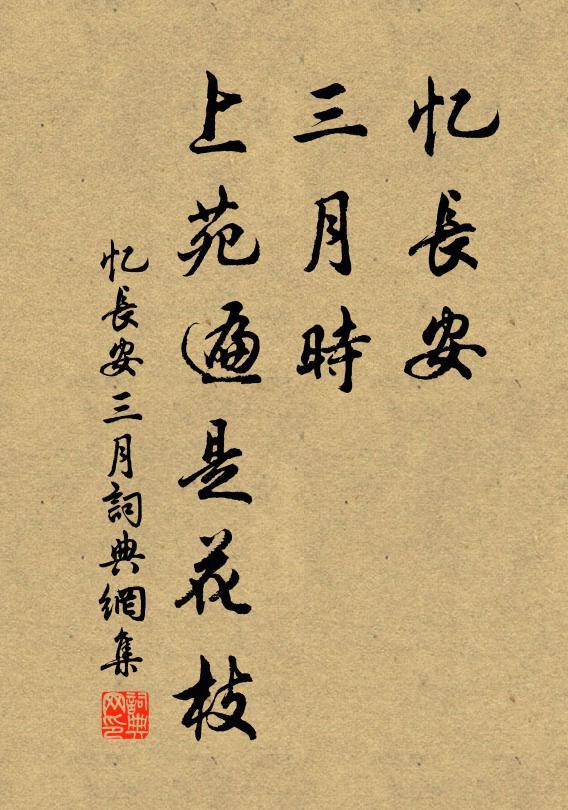 忆長安
三月時
上苑遍是花枝
忆長安三月詞典網集
詞典
网印